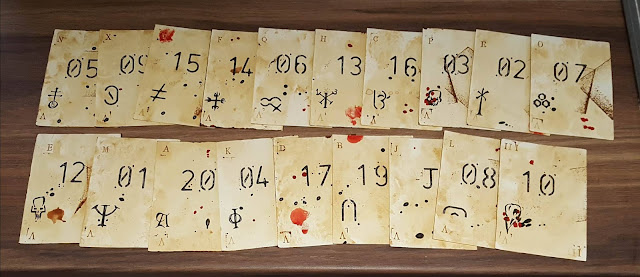 N X F H C P R O
05 09 15 14 06 13 16 03 02 07
E M A K D B J L
12 01 20 04 17 19 J 08 10